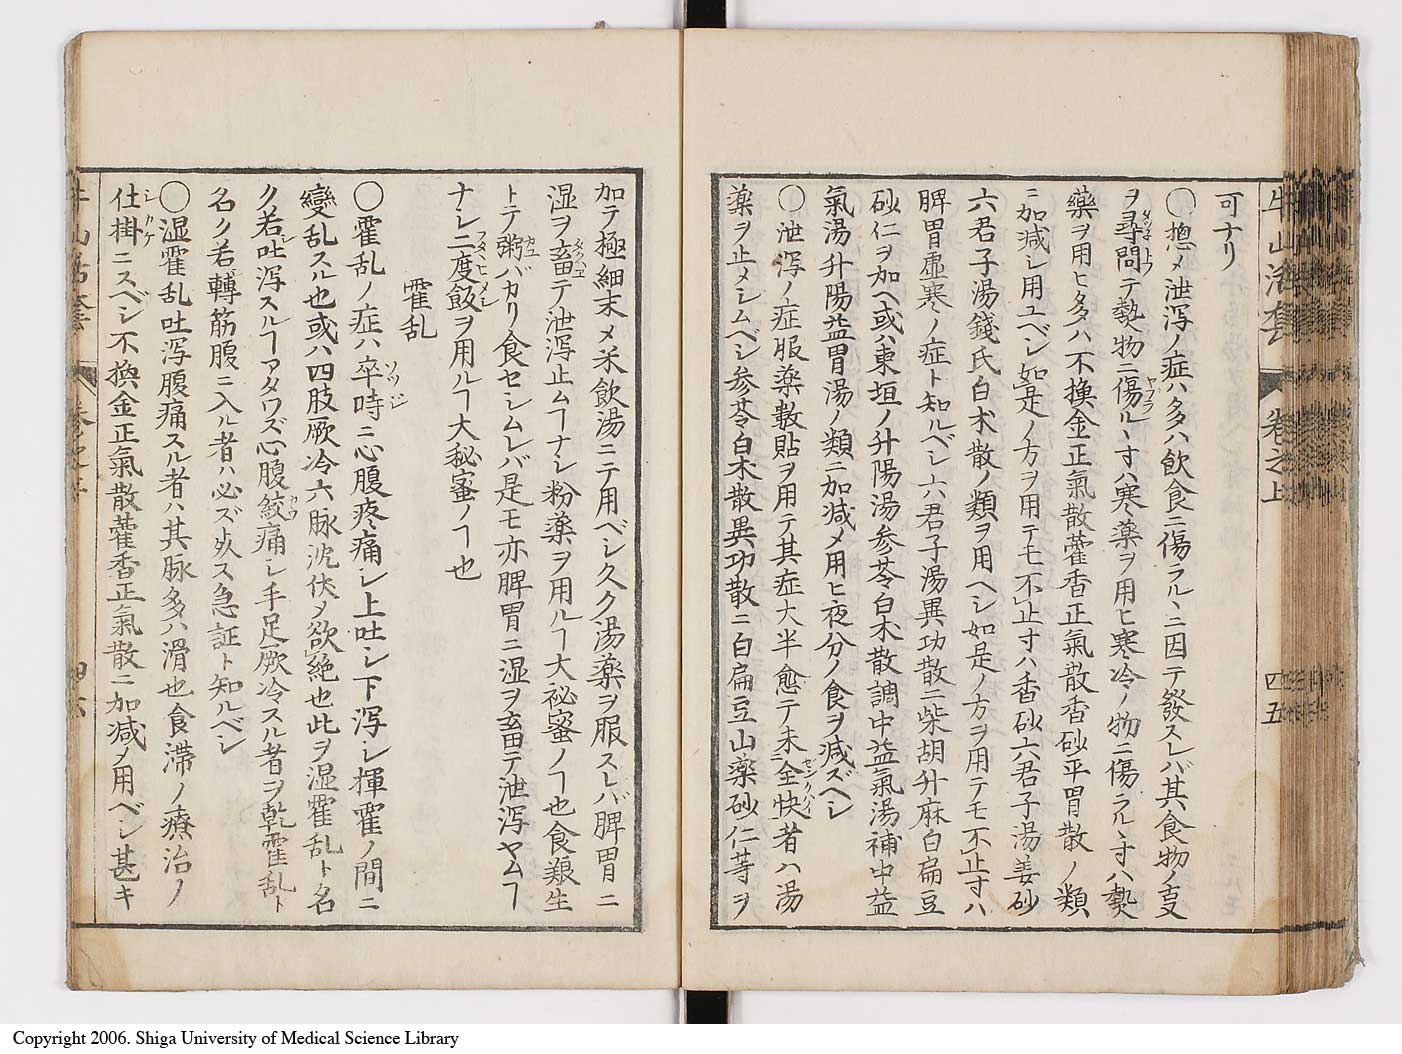 牛山活套 卷之上 四五
可ナリ
○摠メ泄瀉ノ症ハ多ハ飲食ニ傷ラルヽニ因テ發スレバ其食物ノ㕝
ヲ尋問テ熱物ニ傷ルヽ寸ハ寒薬ヲ用ヒ寒冷ノ物ニ傷ラルヽ寸ハ熱
藥ヲ用ヒタ多ハ不換金正氣散藿香正氣散香砂平胃散ノ類
ニ加減レ用ユベシ如是ノ方ヲ用テモ不止寸ハ香砂六君子湯姜砂
六君子湯錢氏白朮散ノ類ヲ用ヘシ如是ノ方ヲ用テモ不止寸ハ
脾胃虚寒ノ症ト知ルベシ六君子湯異功散ニ柴胡升麻白扁豆
砂仁ヲ加ヘ或ハ東垣ノ升陽湯参苓白朮散調中益氣湯補中益
氣湯升陽益胃湯ノ類ニ加減メ用ヒ夜分ノ食ヲ减ズベシ
○泄瀉ノ症服薬数貼ヲ用テ其症大半愈テ未全快者ハ湯
薬ヲ止メシムベシ参苓白朮散異功散ニ白扁豆山藥砂仁等ヲ
加テ極細末メ米飲湯ニテ用ベシ久ク湯薬ヲ服スレバ脾胃ニ
湿ヲ畜テ泄瀉止ムヿナシ粉薬ヲ用ルヿ大祕蜜ノヿ也食艱生
トテ粥バカリ食セシムレバ是モ亦脾胃ニ湿ヲ畜テ泄瀉ヤムヿ
ナレ二度飯ヲ用ルヿ大秘蜜ノヿ也
霍乱
○霍乱ノ症ハ卒時ニ心腹疼痛レ上吐シ下瀉シ揮霍ノ間ニ
變乱スル也或ハ四肢厥冷六脉沈伏メ欲絶也此ヲ湿霍乱ト名
ク若吐瀉スルヿアタワズ心腹絞痛レ手足厥冷スル者ヲ乾霍乱ト
名ク若轉筋腹ニ入ル者ハ必ズ死ス急証ト知ルベシ
○湿霍乱吐瀉腹痛スル者ハ其脉多ハ滑也食滞ノ療治ノ
仕掛ニスベシ不換金正氣散藿香正氣散ニ加减メ用ベシ甚キ
Copyright 2006. Shiga University of Medical Science Library